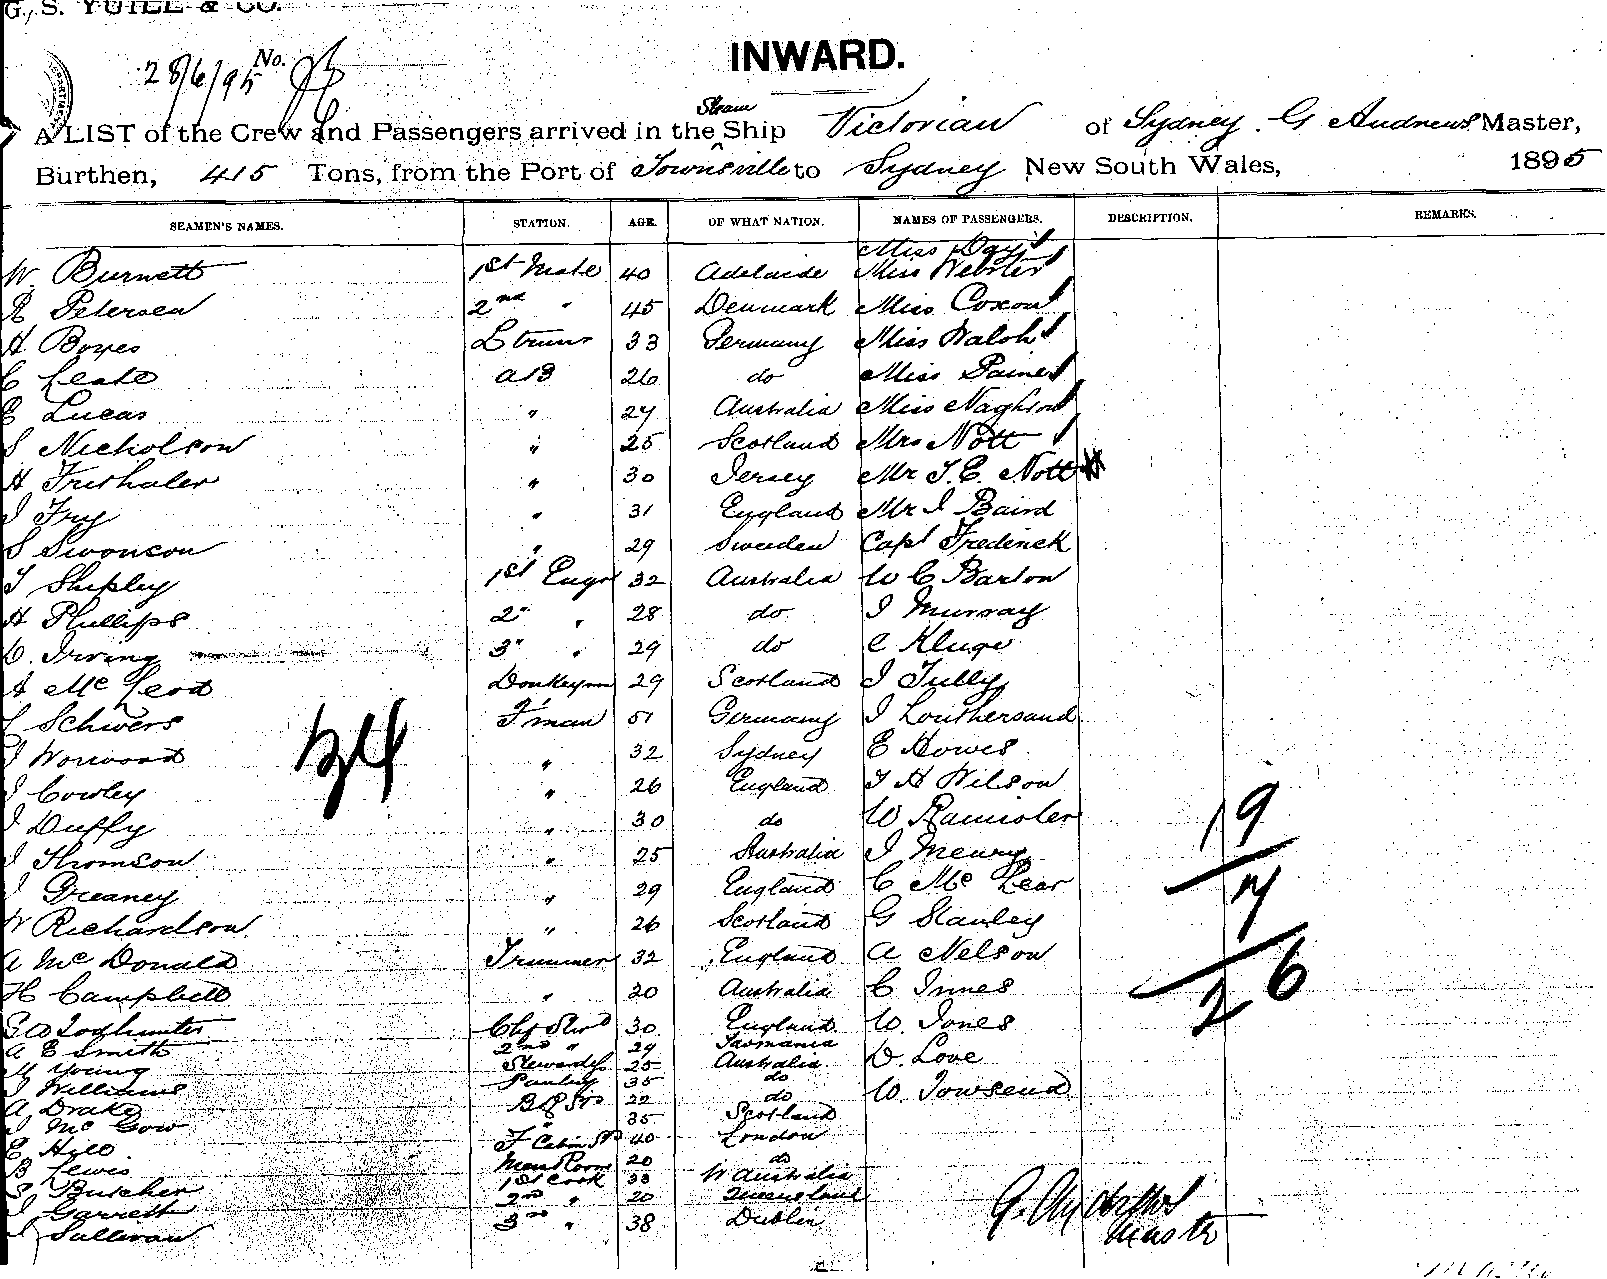 G. S. YUILL & CO.
28/6/95 No.
INWARD.
Steam
A LIST of the Crew and Passengers arrived in the Ship Victorian of Sydney. G Andrews Master,
Burthen, 415 Tons, from the Port of Townsville to Sydney New South Wales, 1895
SEAMEN'S NAMES. STATION. AGE. OF WHAT NATION. NAMES OF PASSENGERS. DESCRIPTION. REMARKS.
Miss Day
W. Burnett 1st Mate 40 Adelaide Miss Webster
Petersen 2nd " 45 Denmark Miss Coxon
H Boyes 33 Germany Miss Walsh
C Leale AB 26 do Miss Paine
E Lucas " 27 Australia Miss
S Nicholson " 25 Scotland Mrs Nott
H " 30 Jersey Mr T. C. Nott
J Fry " 31 England Mr J Baird
S Swonson " 29 Sweeden Capt Frederick
T Shipley 1st Engr 32 Australia W C Barton
H Phillips 2" " 28 do J Murray
C. Irving 3" " 29 do C Kluge
A Mc Leod Donkeyman 29 Scotland J Tully
Schwers F'man 51 Germany J
J Worwood " 32 Sydney E Howes
J Cowley " 26 England T H Wilson
J Duffy " 30 do W Bannister
J Thomson " 25 Australia J
J Greaney " 29 England C Mc Lear
W Richardson " 26 Scotland G Stanley
A Mc Donald Trimmer 32 England A Nelson
H Campbell " 20 Australia C Innes
G A Todhunter Chf Stwd 30 England W. Jones
A E Smith 2nd " 29 Tasmania
M Young Stewardess 25 Australia D. Love
J Williams Pantry 35 do W. Towsend
A Drake 20 do
J Mc Gow " 35 Scotland
E Hill F Cabin 40 London
B Lewis Mess Room 20 do
Butcher 1st Cook 33 W Australia
J Garrett 2nd " 20 Queensland
J Sullivan 3rd " 38 Dublin
34
19
7
26
G. Andrews
Master